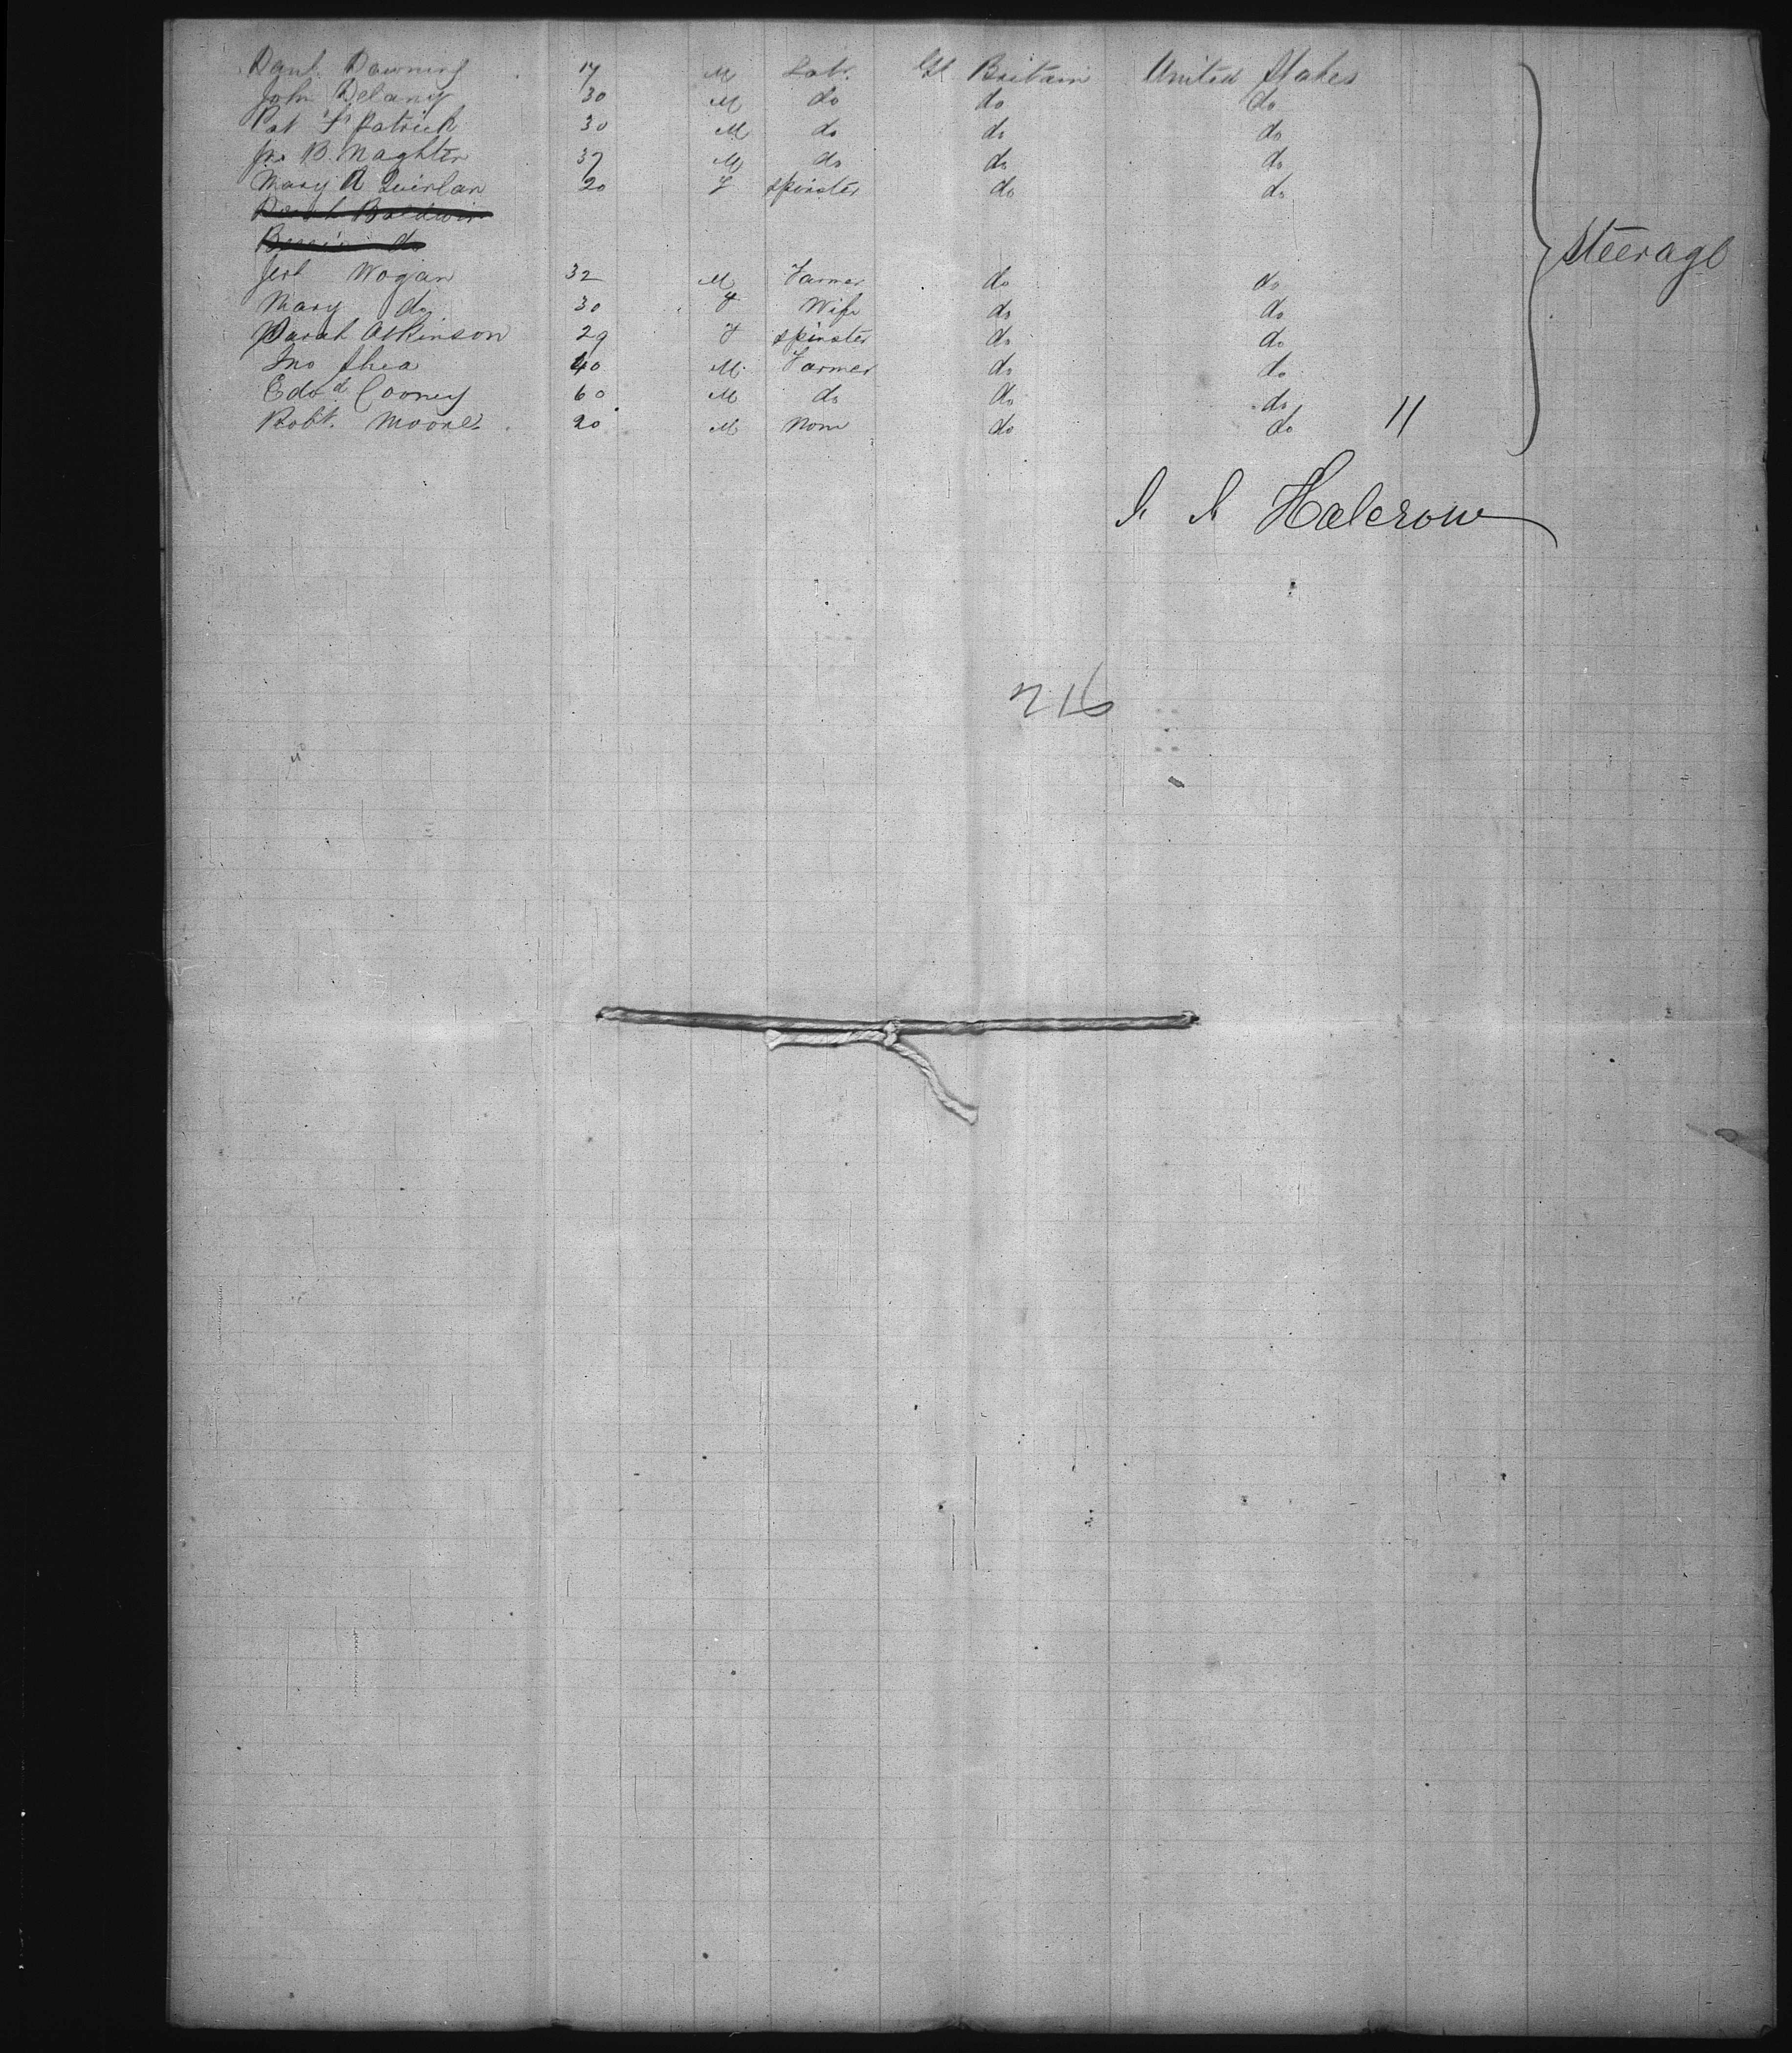 Danl. Downing 17 M Labr. Gt. Britain United States
John Delany 30 M do do do
Pat F'patrick 30 M do do do
Jno B. Naghten 37 M do do do
Mary A Quirlan 20 F spinster do do
Baldwin
do
Wogan 32 M Farmer do do
Mary do 30 F Wife do do
Sarah Atkinson 29 F spinster do do
Jno Shea 40 M Farmer do do
Edwd. Cooney 60 M do do do
Robt. Moore 20 M None do do 11
Steerage
Halcrow
216